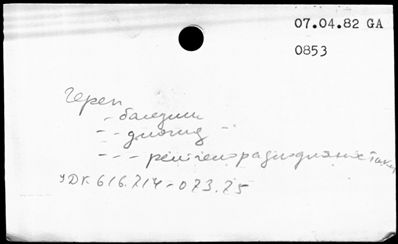 07.04.82 GA
0853
Череп
- болезни
- - диагид - -
- - - рентгенорадиодиагностика
УДК 616.714-073.75